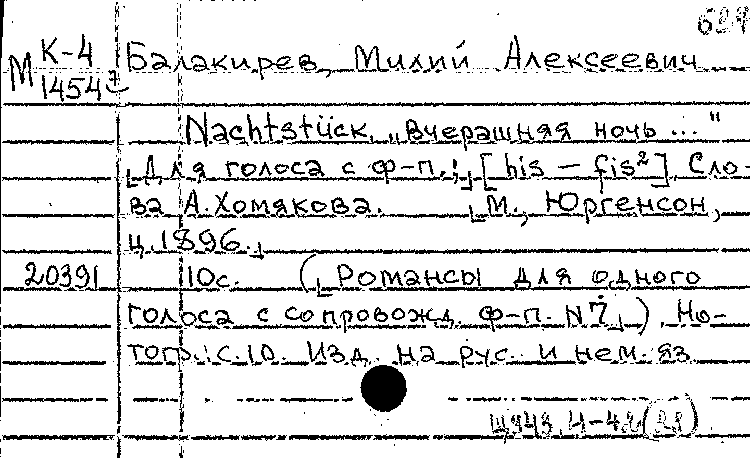 К-4 Балакирев, Милий Алексеевич
М 14547
Nachtstück „Вчерашняя ночь..."
Для голоса с ф-п.; [his – fis²]. Сло-
ва А. Хомякова. М., Юргенсон,
ц. 1896.
20391 10с. (Романсы для одного
голоса с сопровожд. ф-п. N7). Но-
тогр.: с.10. Изд. на рус. и нем. яз